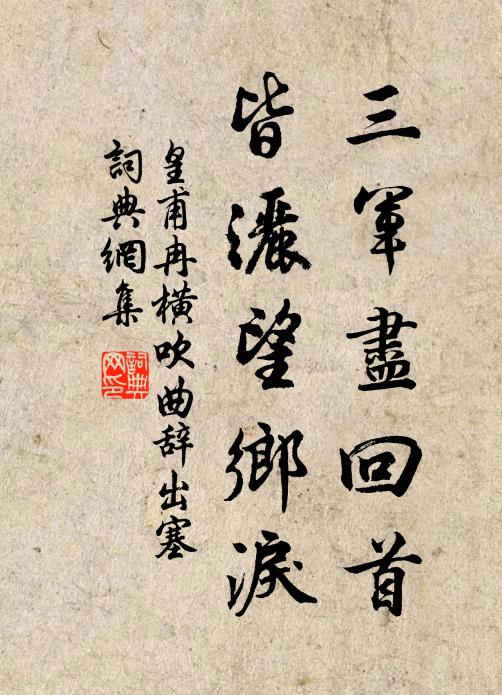 三軍盡回首
皆灑望鄉淚
皇甫冉橫吹曲辭出塞
詞典網集
詞典网印